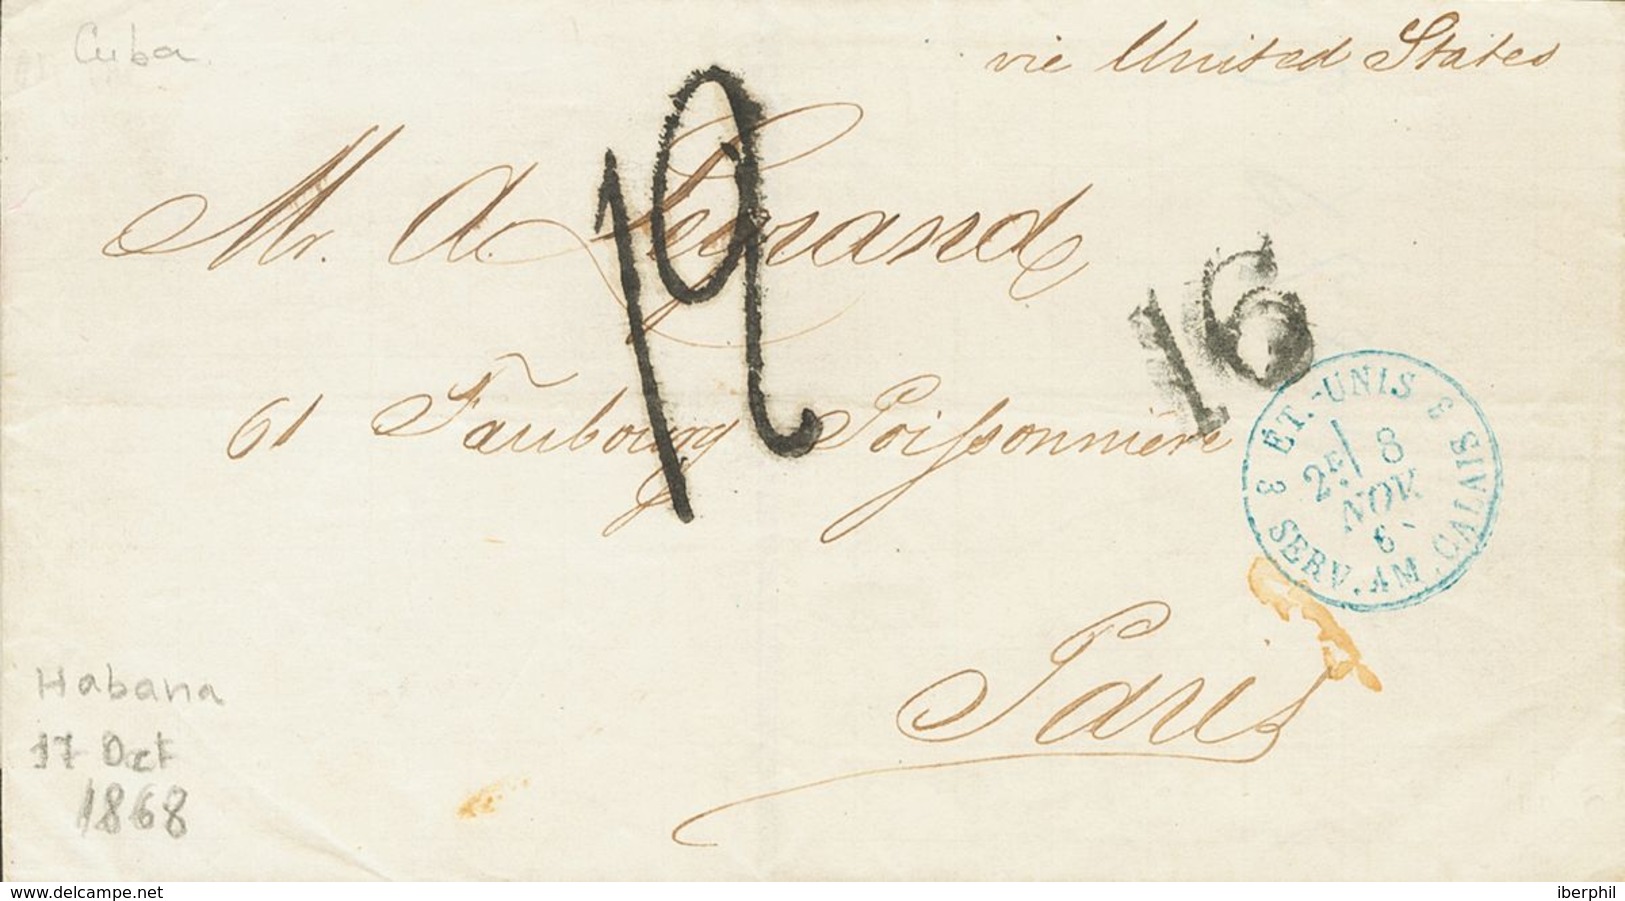 Cuba
vie United States
Mr. A. Legrand
12
16
61 Faubourg Poissonnière
ET.-UNIS
2E/ 8
NOV.
6
SERV. AM. CALAIS
Paris
Habana
17 Oct
1868
www.delcampe.net
iberphil